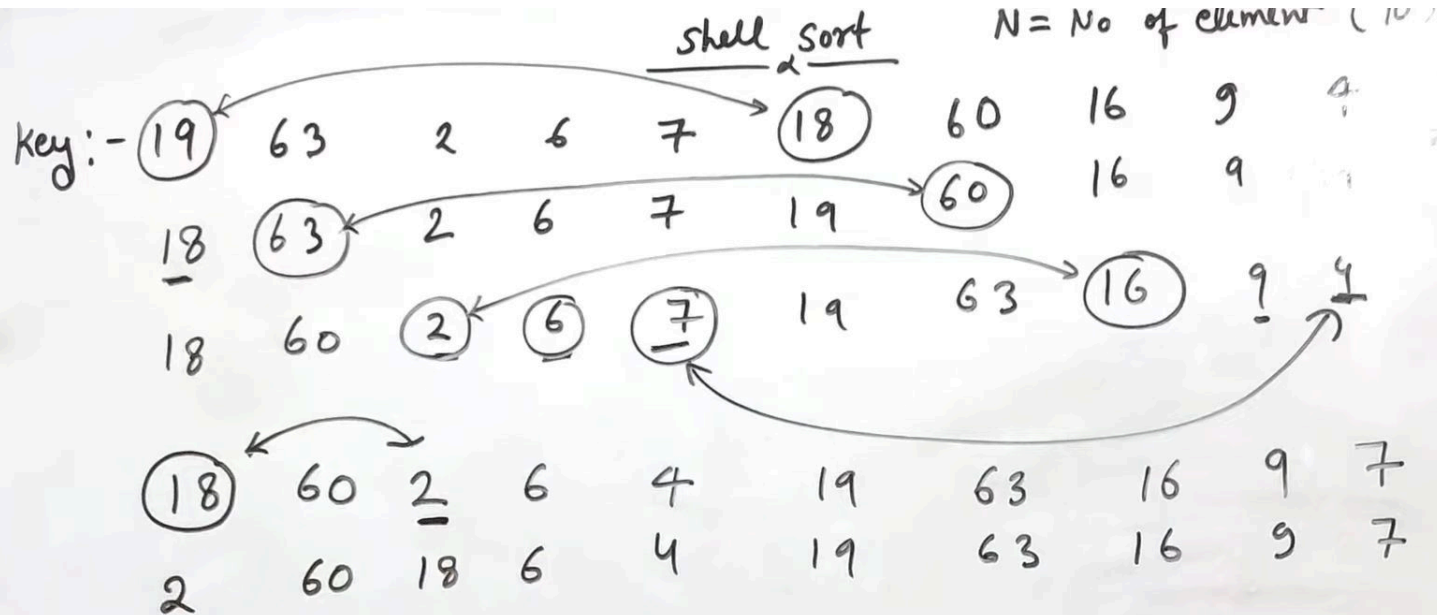 shell sort
N = No of element (10
Key:- 19 63 2 6 7 18 60 16 9 4
18 63 2 6 7 19 60 16 9
18 60 2 6 7 19 63 16 9 4
18 60 2 6 4 19 63 16 9 7
2 60 18 6 4 19 63 16 9 7